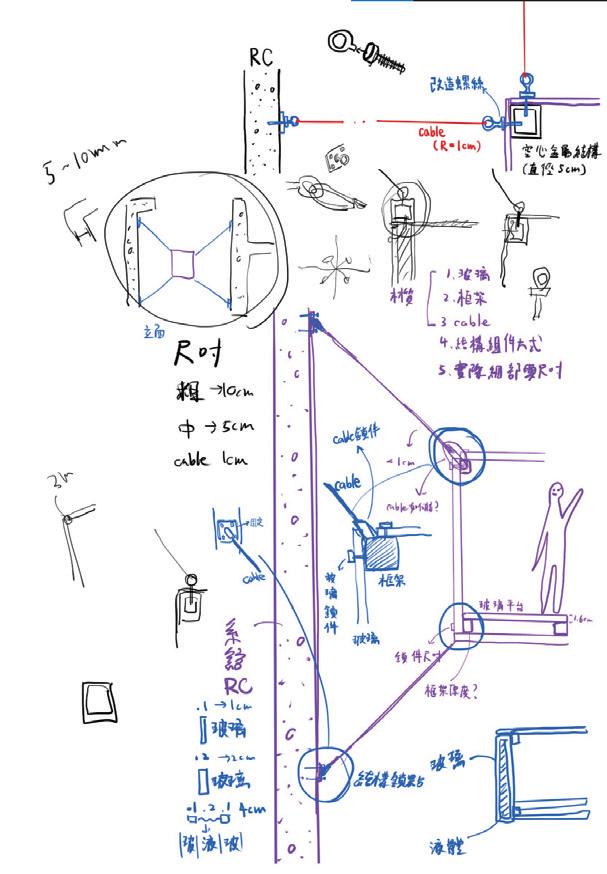 RC
改造螺絲
cable
(R=1cm)
空心金屬結構
(直徑5cm)
5~10mm
立面
材質
1.玻璃
2.框架
3 cable
4.結構組件大式
5.實際細部要尺寸
尺寸
粗→10cm
中→5cm
cable 1cm
cable鎖件
<1cm
cable
cable如何鎖?
固定
cable
玻璃鎖件
框架
玻璃
玻璃平台
1.6cm
鎖件尺寸
框架深度?
RC
.1→1cm
玻璃
.2→2cm
玻璃
.1 .2 .1 4cm
|玻|液|玻|
玻璃
液體